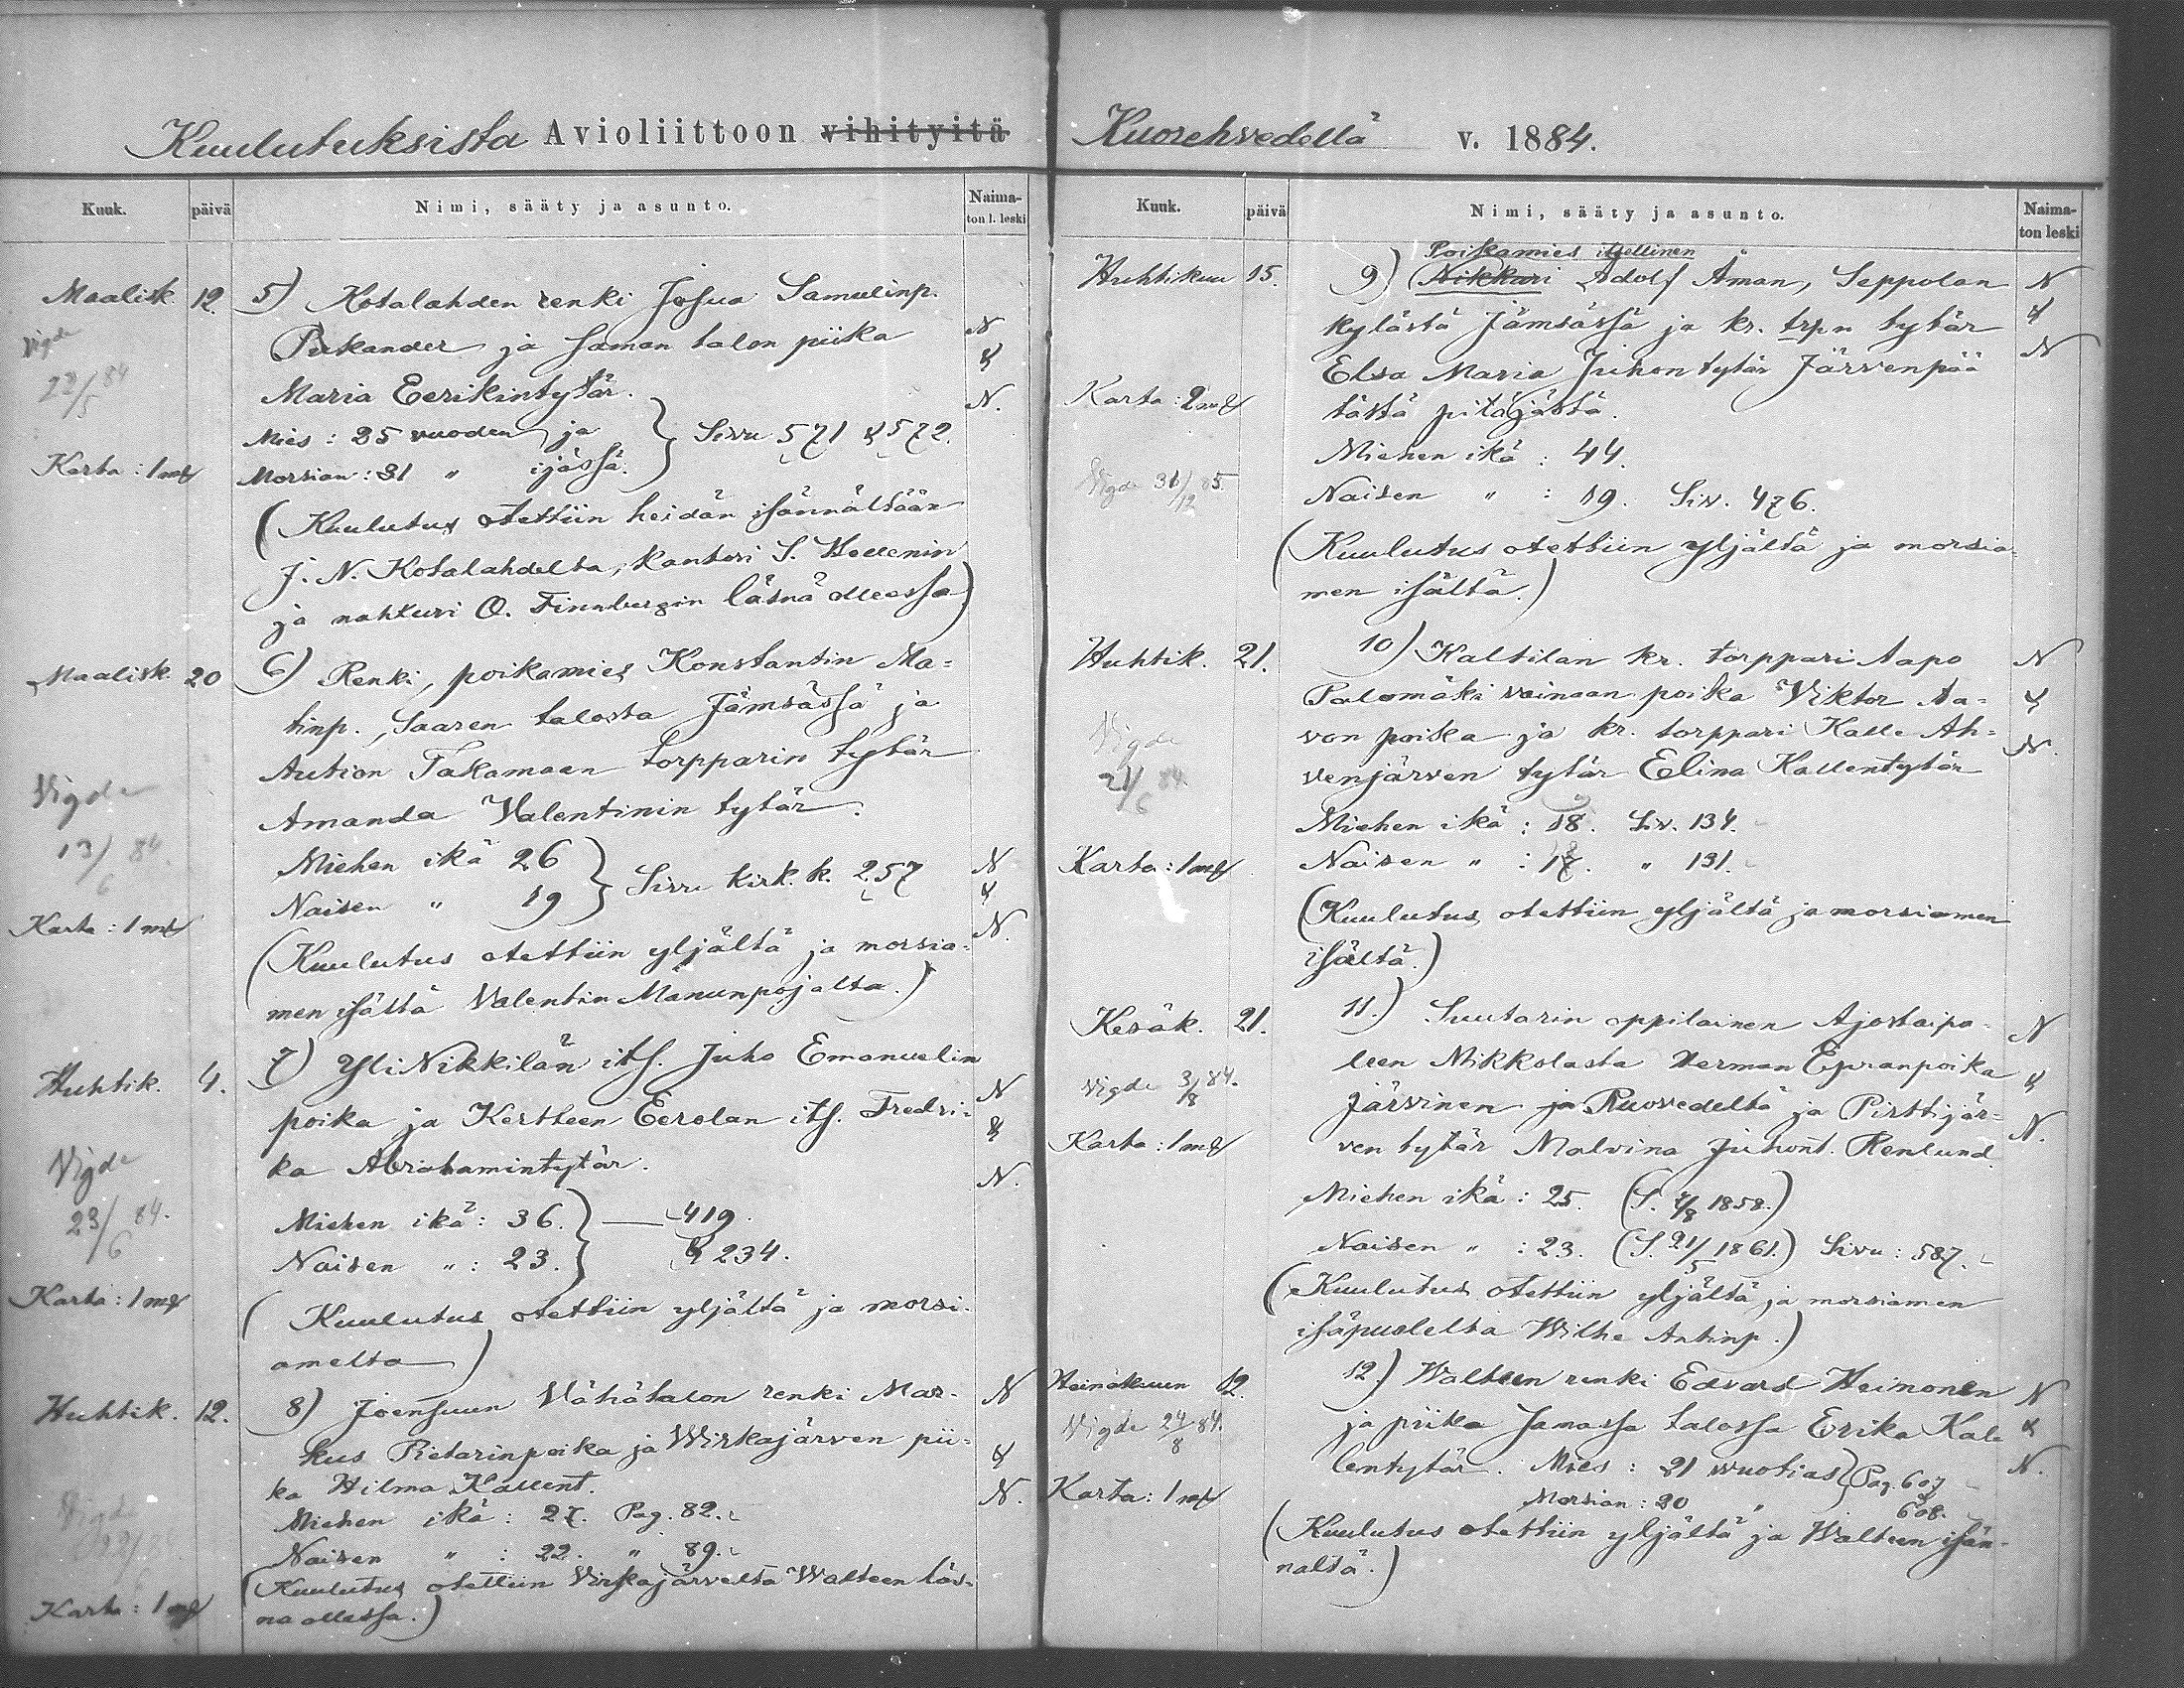 Kuulutuksista Avioliittoon vihityitä
Kuuk. päivä Nimi, sääty ja asunto. Naima-
ton l. leski
Maalisk. 12. 5) Kotalahden renki Josua Samulinp.
Vigde Pukander ja saman talon piika N
&
22/5 84 Maria Eerikintytär. N.
Mies: 25 vuoden ja
Karta: 1 mk Morsian: 31 " ijässä. } Sivu 571 & 572.
(Kuulutus otettiin heidän isännältään
J. N. Kotalahdelta, kantori S. Hellenin
ja nahkuri O. Finnbergin läsnä ollessa)
Maalisk. 20 6) Renki, poikamies Konstantin Ma=
tinp., Saaren talosta Jämsässä ja
Aution Takamaan torpparin tytär
Vigde Amanda Valentinin tytär.
13/6 84 Miehen ikä 26 N
Naisen " 19 } Sivu kirk. k. 257 &
Karta: 1 mk N.
(Kuulutus otettiin yljältä ja morsia=
men isältä Valentin Manunpojalta.)
Huhtik. 4. 7) Yli Nikkilän its. Juho Emanuelin N
poika ja Kertteen Eerolan its. Fredri- &
Vigde ka Abrahamintytär. N.
23/6 84. Miehen ikä: 36. } — 419.
Naisen " : 23. & 234.
Karta: 1 mk
(Kuulutus otettiin yljältä ja morsi-
amelta)
Huhtik. 12. 8) Joensuun Vähätalon renki Mar- N
kus Pietarinpoika ja Wirkajärven pii- &
ka Hilma Kallent. N.
Vigde Miehen ikä: 27. Pag. 82.
Naisen " : 22. " 89.
(Kuulutus otettiin Virkajärveltä Walteen läs-
Karta: 1 mk na ollessa.)
Kuorehvedellä v. 1884.
Kuuk. päivä Nimi, sääty ja asunto. Naima-
ton leski
Poikamies itsellinen
Huhtikuu 15. 9) (Nikkari Adolf Åman, Seppolan N
kylästä Jämsässä ja kr. trp.n tytär &
Elsa Maria Juhontytär Järvenpää N
Karta: 2 mk tästä pitäjästä.
Miehen ikä: 44.
Vigde 31/12 85. Naisen " : 19. Siv. 476.
(Kuulutus otettiin yljältä ja morsia-
men isältä.)
Huhtik. 21. 10) Kaltilan kr. torppari Aapo N
Palomäki vainaan poika Viktor Aa= &
von poika ja kr. torppari Kalle Ah= N.
Vigde venjärven tytär Elina Kallentytär
21/6 84. Miehen ikä: 18. Siv. 134.
Karta: 1 mk Naisen " : 17. " 131.
(Kuulutus otettiin yljältä ja morsiamen
isältä.)
Kesäk. 21. 11.) Suutarin oppilainen Ajostaipa- N
leen Mikkolasta Herman Epranpoika &
Vigde 3/8 84. Järvinen ja Ruovedeltä ja Pirttijär- N.
Karta: 1 mk ven tytär Malvina Juhont. Renlund.
Miehen ikä: 25. (S. 4/8 1858.)
Naisen " : 23. (S. 21/5 1861.) Sivu: 587.
(Kuulutus otettiin yljältä ja morsiamen
isäpuolelta Wilhe Antinp.)
Heinäkuun 12. 12.) Walteen renki Edvard Heimonen N
Vigde 24/8 84. ja piika samassa talossa Erika Kal- &
lentytär. Mies: 21 vuotias } Pag. 607 N.
Karta: 1 mk Morsian: 20 " 608.
(Kuulutus otettiin yljältä ja Walteen isän-
nältä.)